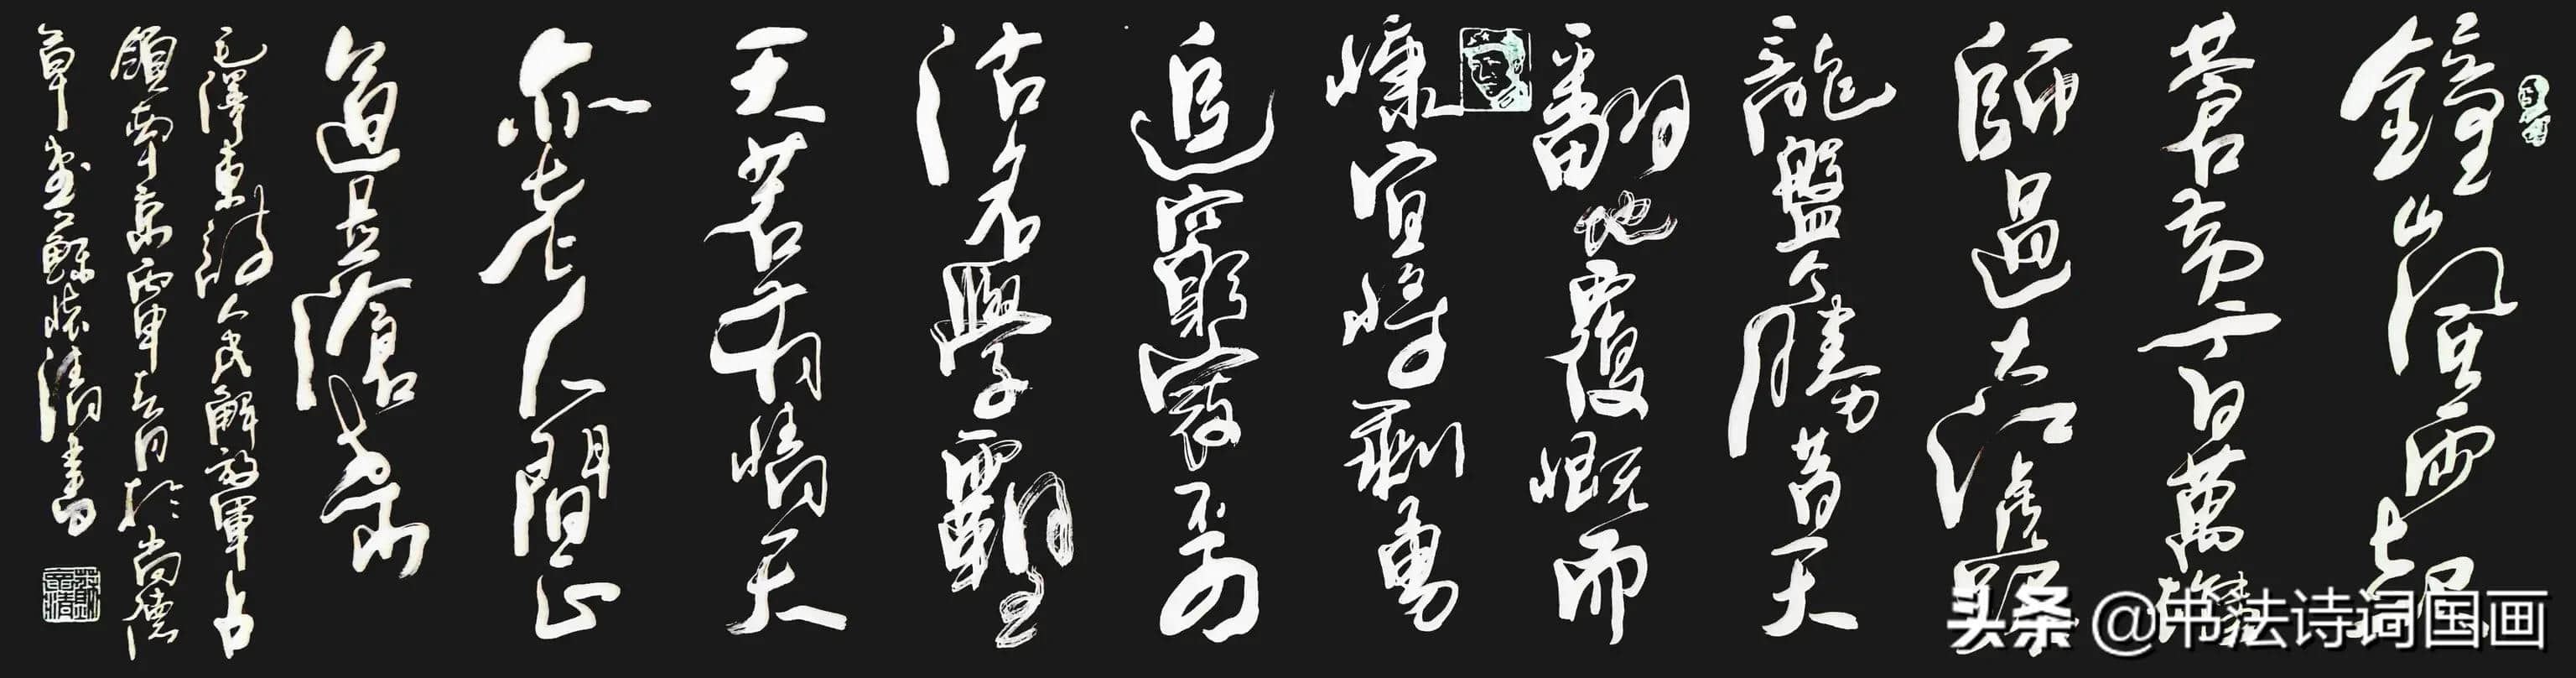 鐘山風雨起
蒼黃百萬雄
師過大江虎踞
龍盤今勝昔天
翻地覆慨而
慷宜將剩勇
追窮寇不可
沽名學霸王
天若有情天
亦老人間正
道是滄桑
毛澤東詩人民解放軍占
領南京丙申吉日於尚德
草堂蘇懷清書
头条 @书法诗词国画